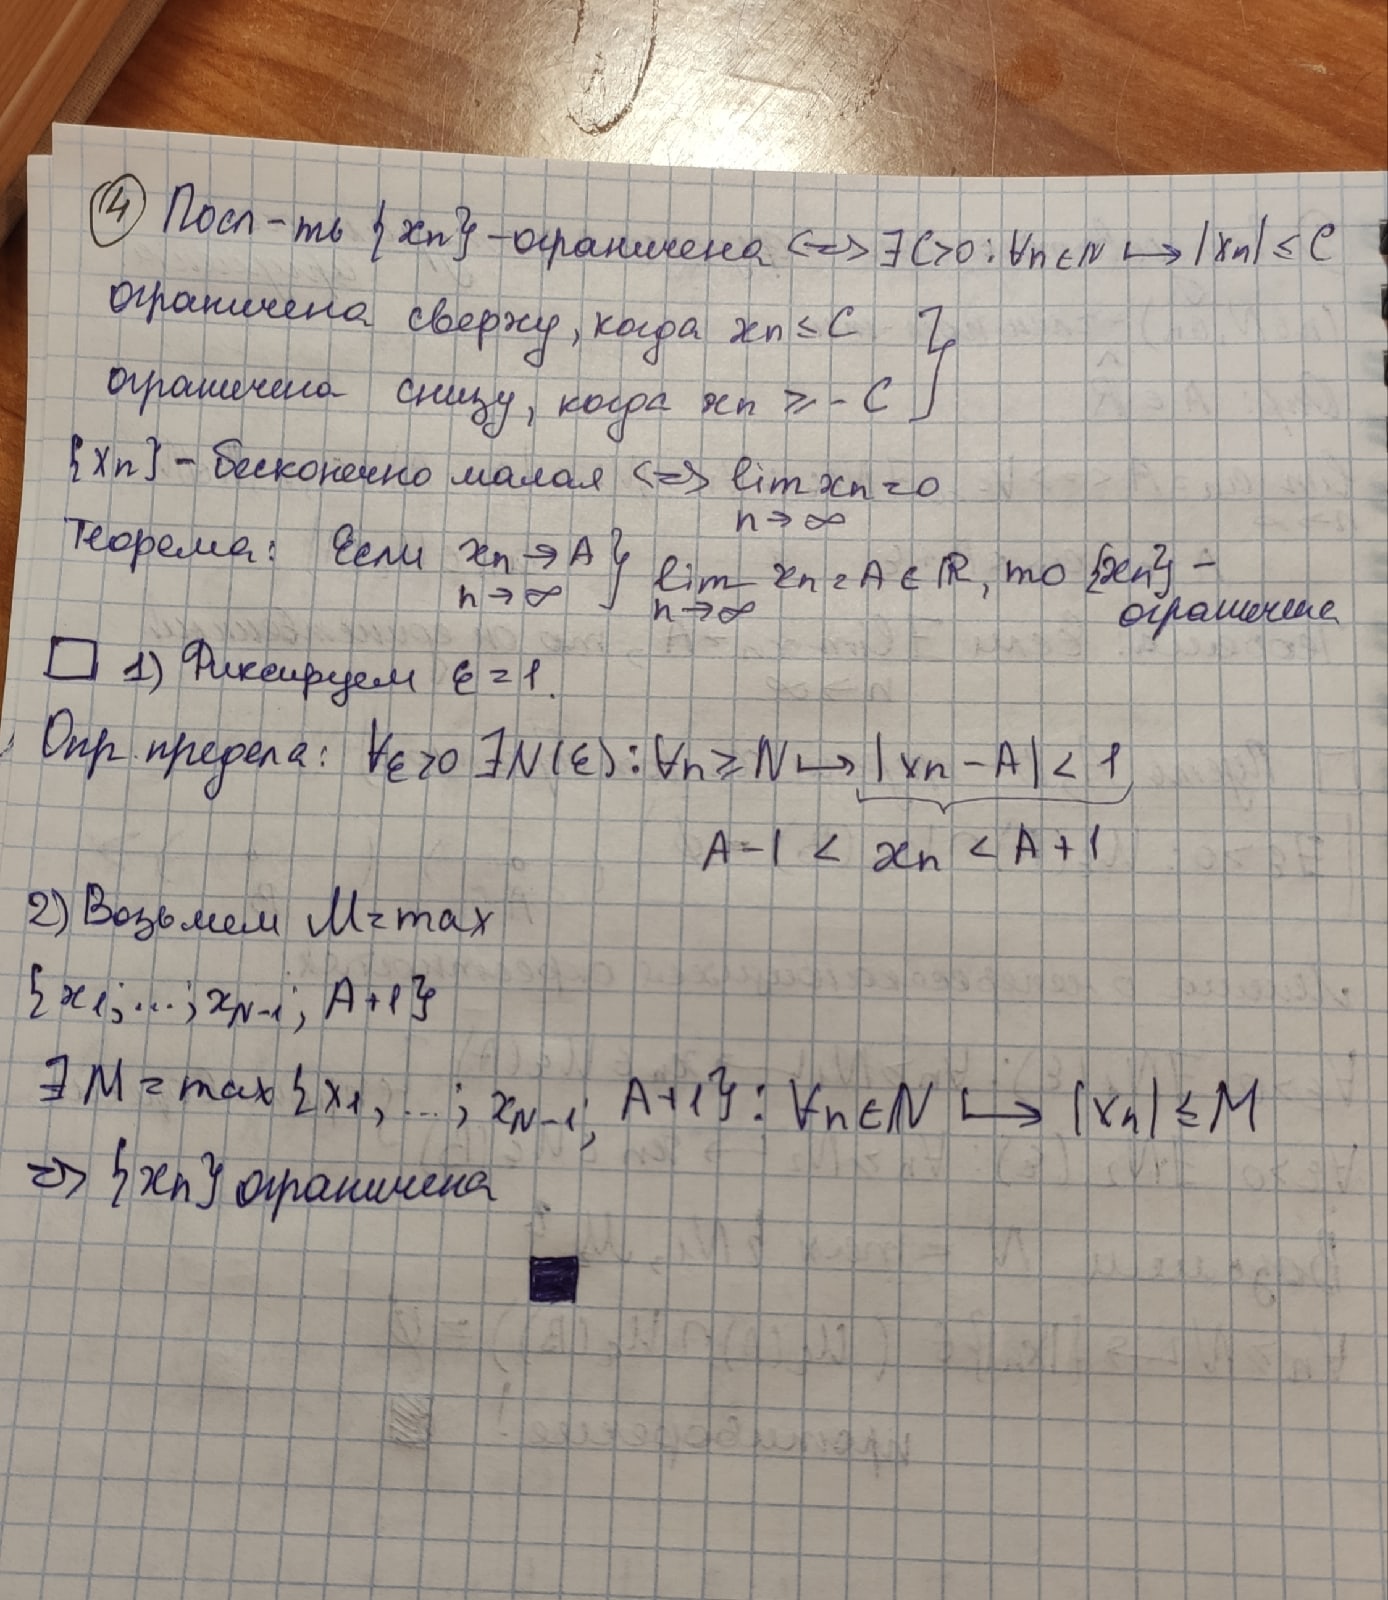 ④ Посл-ть {xn} - ограничена <=> ∃C>0: ∀n∈N ↦ |xn| ≤ C
ограничена сверху, когда xn ≤ C }
ограничена снизу, когда xn ≥ -C
{xn} - бесконечно малая <=> lim xn = 0
n→∞
Теорема: Если xn → A } lim xn = A ∈ R, то {xn} -
n→∞ n→∞ ограничена
□ 1) Фиксируем ε = 1.
Опр. предела: ∀ε>0 ∃N(ε): ∀n≥N ↦ |xn - A| < 1
A-1 < xn < A+1
2) Возьмем M = max
{x1; ...; xN-1; A+1}
∃ M = max {x1, ...; xN-1; A+1}: ∀n∈N ↦ |xn| ≤ M
=> {xn} ограничена
■